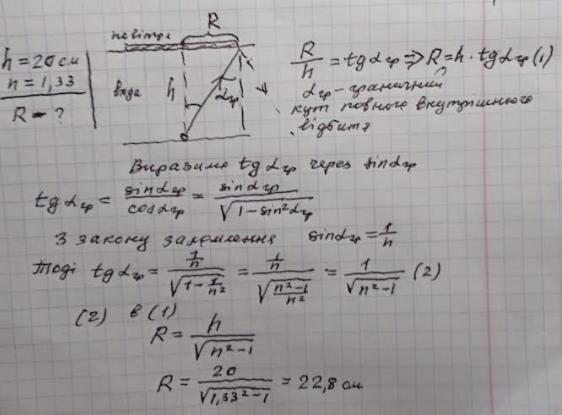 повітря
R
h = 20 см
n = 1,33
R - ?
вода
h
αгр
R/h = tgαгр ⇒ R = h · tgαгр (1)
αгр - граничний
кут повного внутрішнього
відбиття
Виразимо tgαгр через sinαгр
tgαгр = sinαгр/cosαгр = sinαгр/√(1-sin²αгр)
З закону заломлення sinαгр = 1/n
Тоді tgαгр = (1/n)/√(1-1/n²) = (1/n)/√((n²-1)/n²) = 1/√(n²-1) (2)
(2) в (1)
R = h/√(n²-1)
R = 20/√(1,33²-1) = 22,8 см